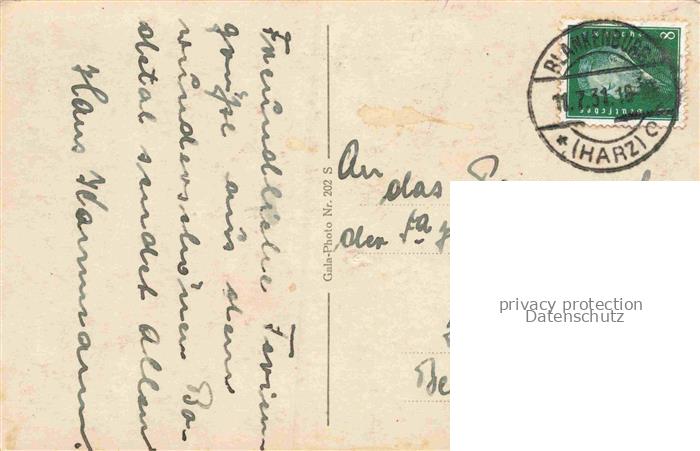 Freundliche Ferien-
grüße aus dem
wunderschönen Bo-
detal sendet Allen
Hans Hammann.
Gala-Photo Nr. 202 S
BLANKENBURG
11.7.31.18
* (HARZ) C
8
An
das
der Fa
Be
privacy protection
Datenschutz